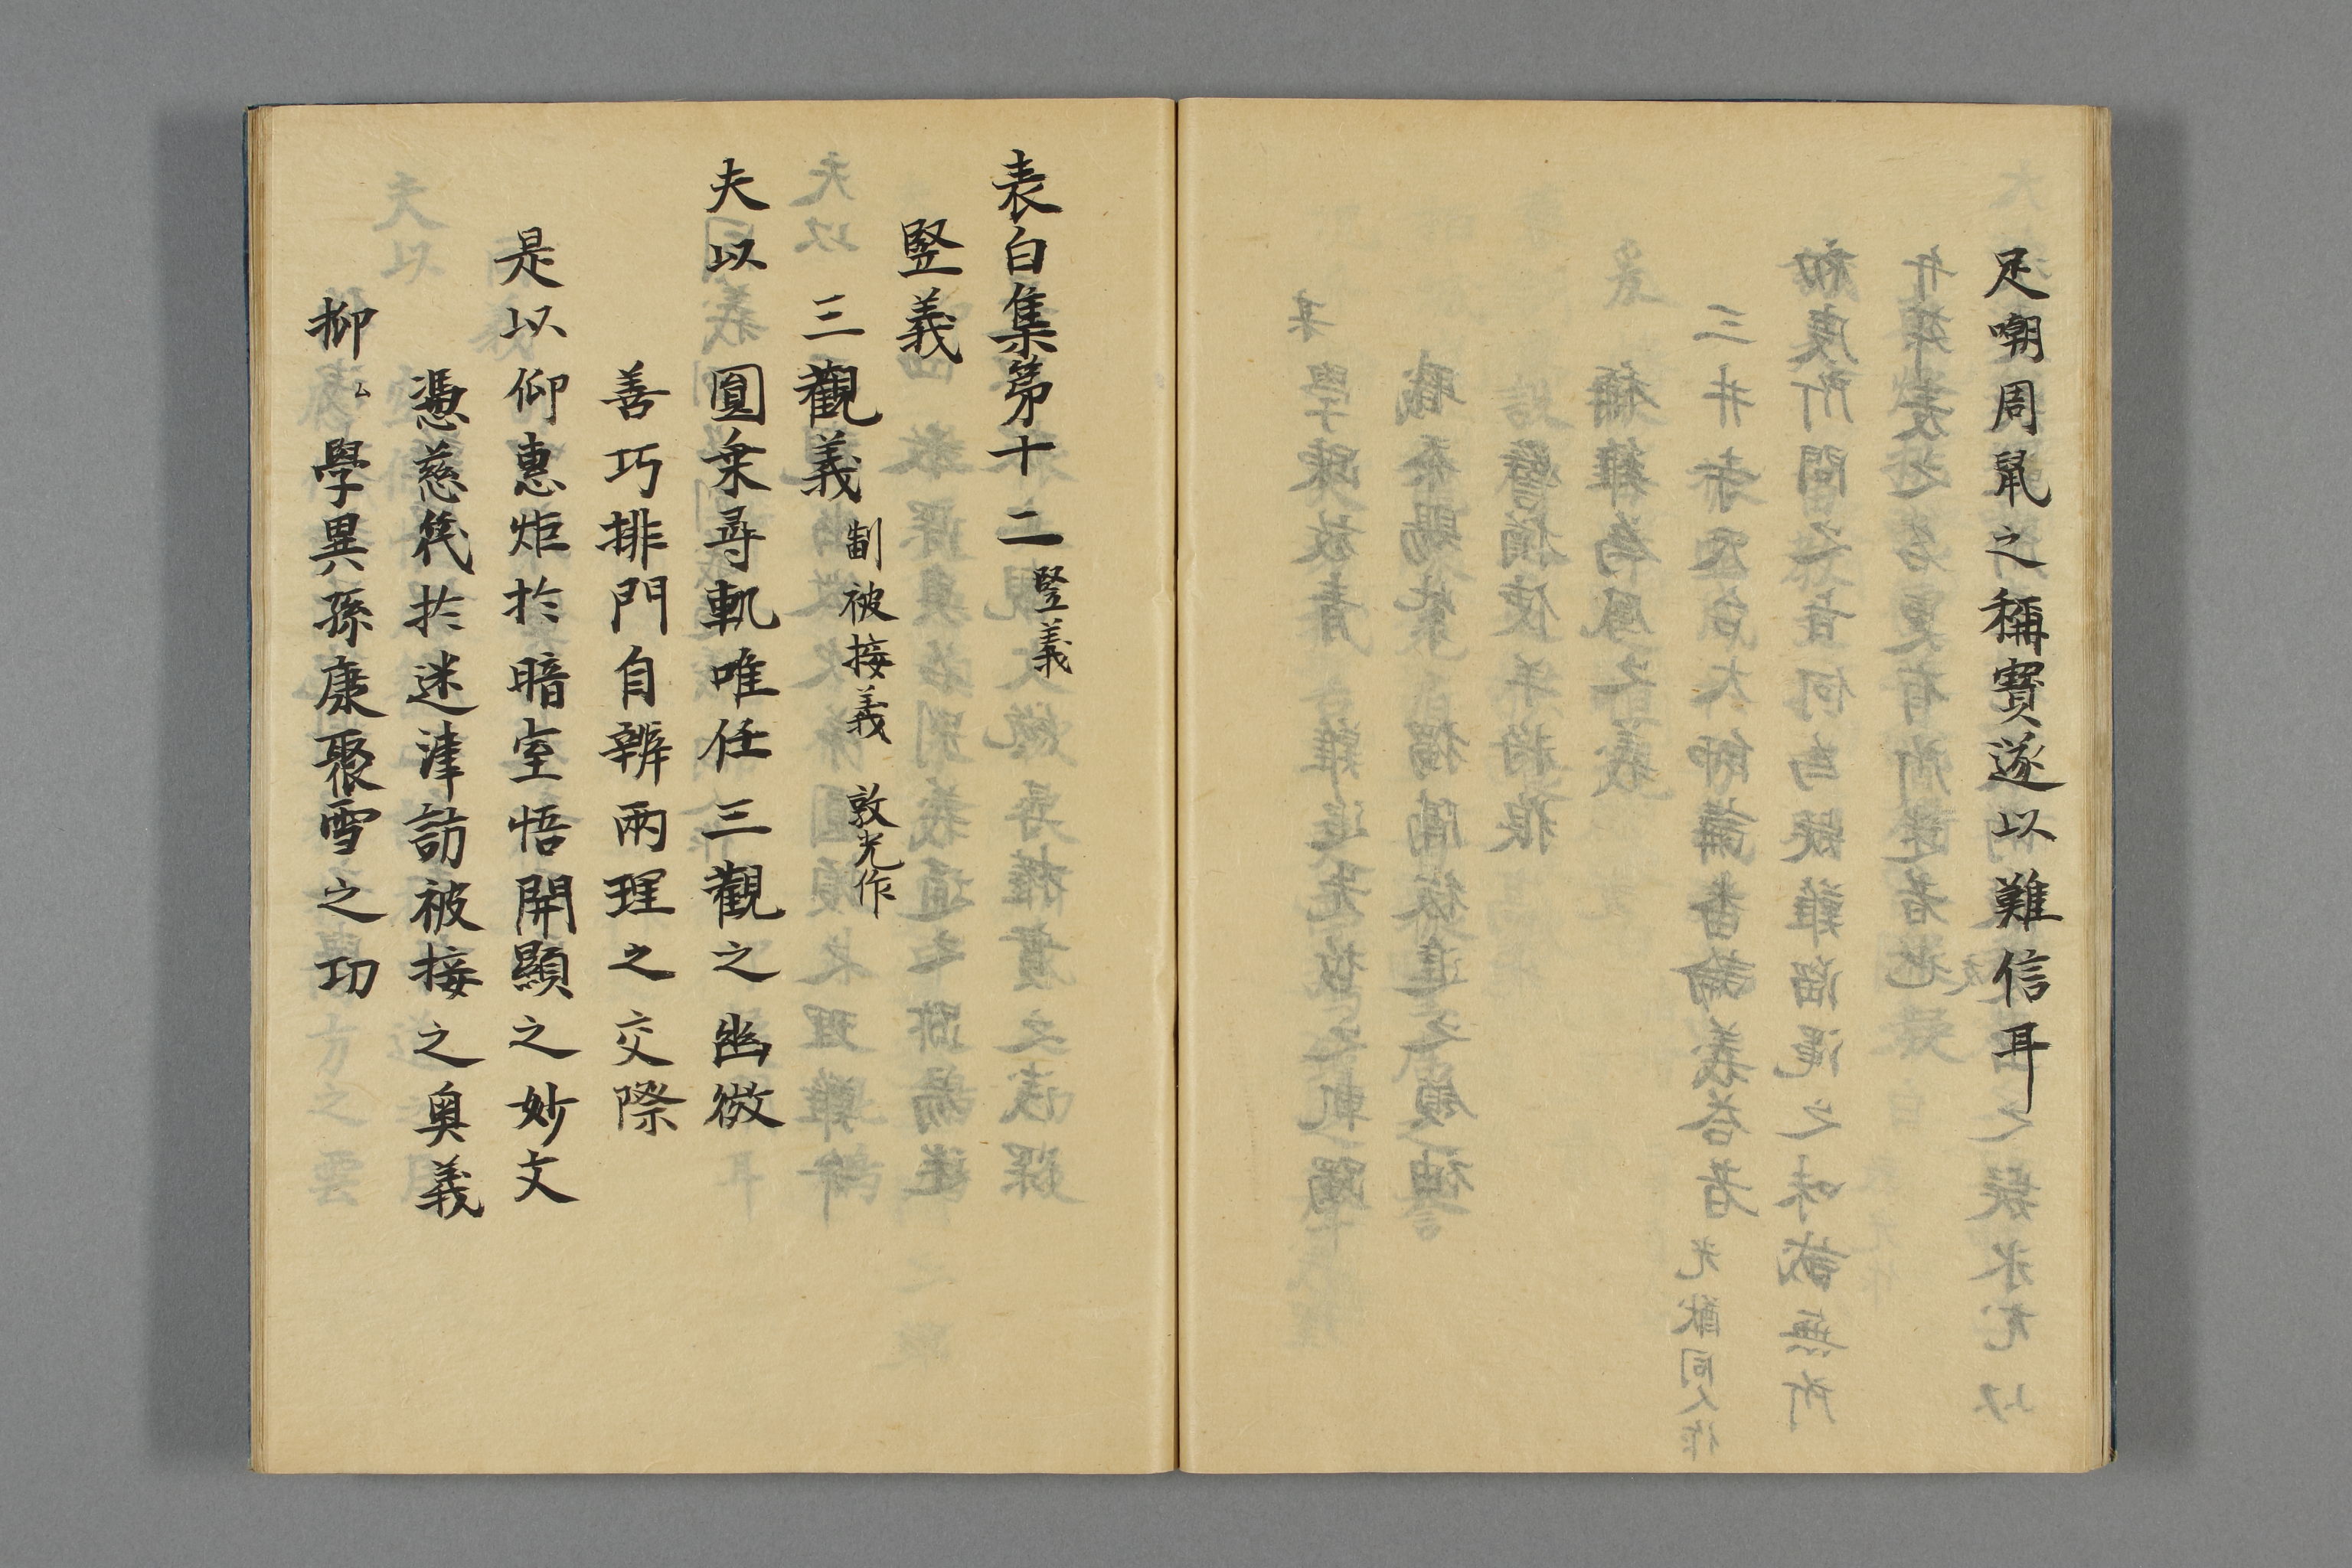 足嘲周鼠之稱寶遂以難信耳
表白集第十二 竪義
竪義
三觀義 副被接義 敦光作
夫以圓乗尋軌唯任三觀之幽微
善巧排門自辨兩理之交際
是以仰惠炬於暗室悟開顯之妙文
憑慈筏於迷津訪被接之奥義
抑〻學異孫康聚雪之功